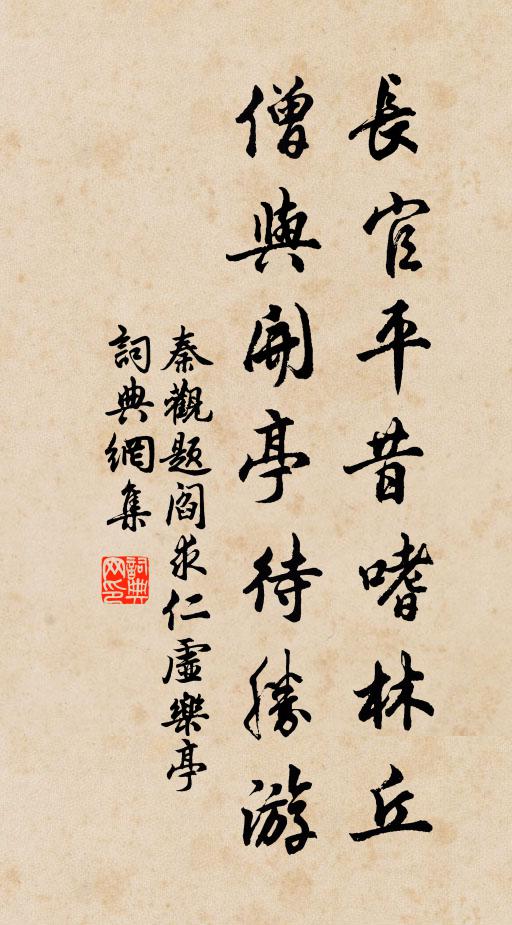 長官平昔嗜林丘
僧與開亭待勝游
秦觀題閻求仁虛樂亭
詞典網集
詞典網印